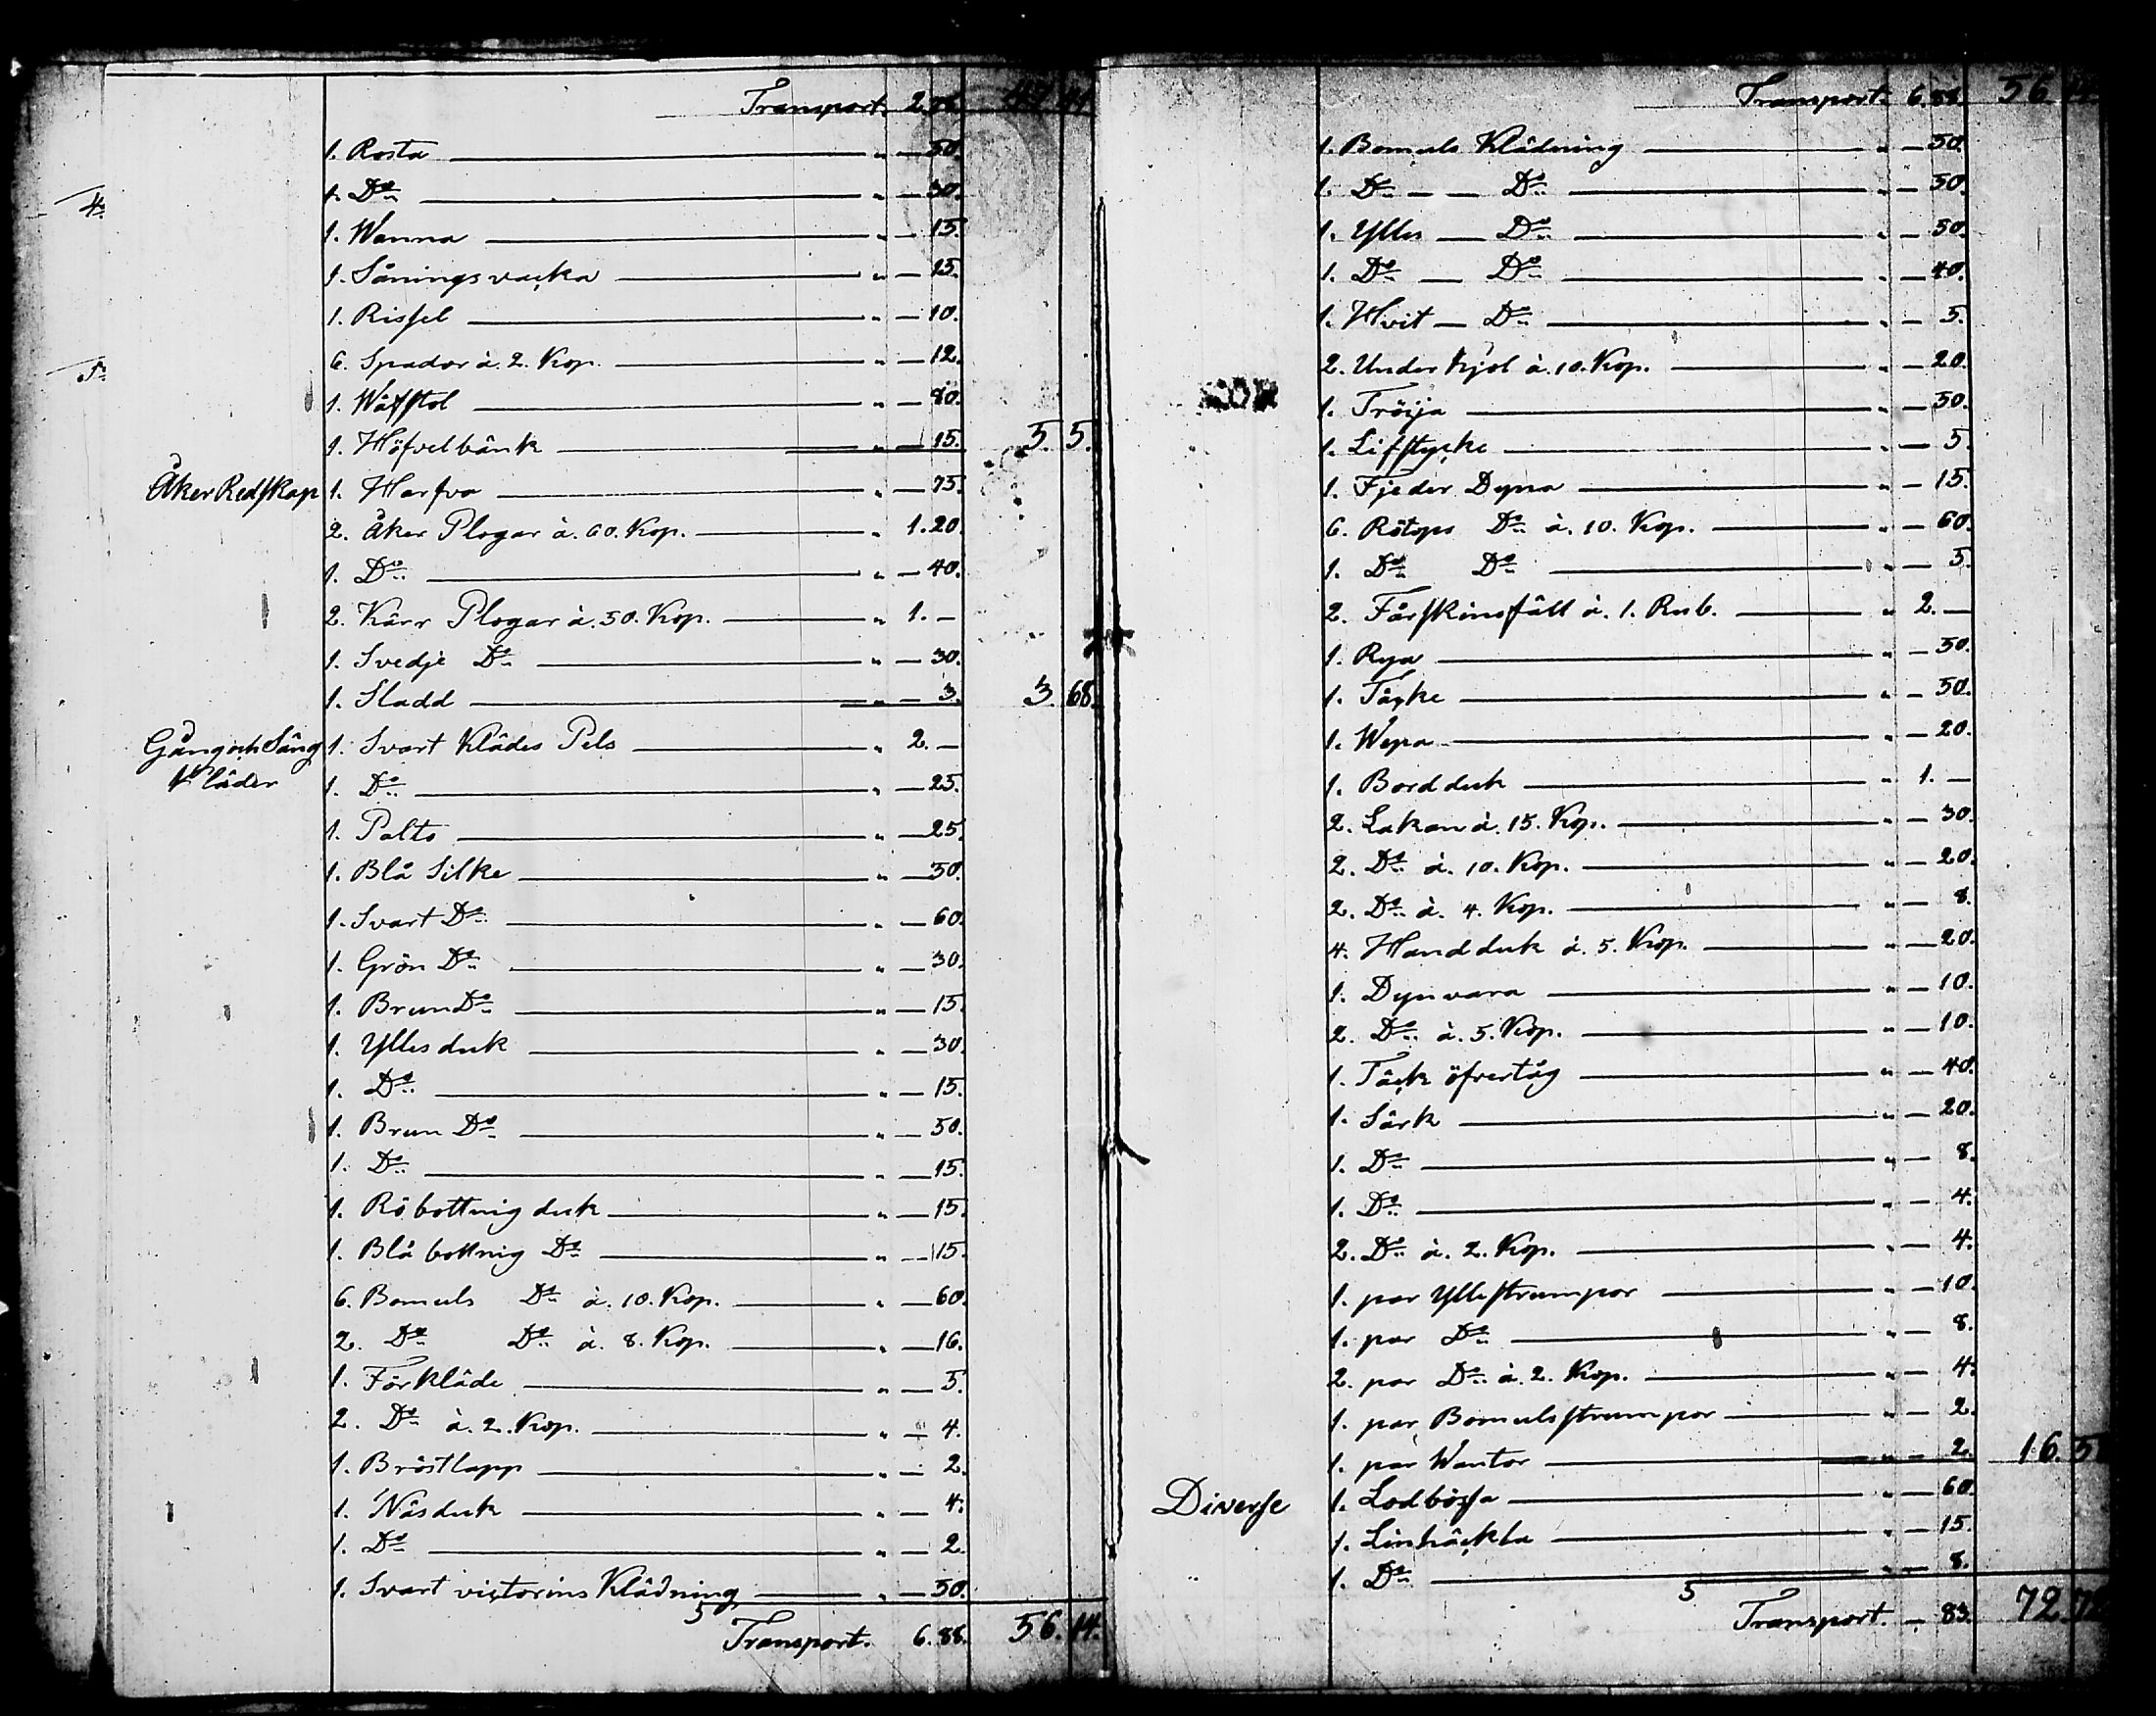 Transport. 2.
1. Rosta " — 50.
1. Do " — 30.
1. Wanna " — 15.
1. Såningsvacka " — 15.
1. Rissel " — 10.
6. Spador à. 2. Kop. " — 12.
1. Wäfstol " — 80.
1. Höfvelbänk " — 15. 5. 5.
Åker Redskap 1. Harfva " — 75.
2. Åker Plogar à. 60. Kop. " 1. 20.
1. Do " — 40.
2. Kärr Plogar à. 50. Kop. " 1. —
1. Svedje Do " — 30.
1. Sladd " — 3. 3. 68.
Gång och Säng 1. Svart Klädes Pels " 2. —
Kläder 1. Do " — 25.
1. Palto " — 25.
1. Blå Silke " — 50.
1. Svart Do " — 60.
1. Grön Do " — 30.
1. Brun Do " — 15.
1. Ylles duk " — 30.
1. Do " — 15.
1. Brun Do " — 50.
1. Do " — 15.
1. Röbottnig duk " — 15.
1. Blå bottnig Do " — 15.
6. Bomuls Do à. 10. Kop. " — 60.
2. Do Do à. 8. Kop. " — 16.
1. Förkläde " — 5.
2. Do à. 2. Kop. " — 4.
1. Bröstlapp " — 2.
1. Näsduk " — 4.
1. Do " — 2.
1. Svart victorins Klädning " — 50.
5
Transport. 6. 88. 56. 14.
Transport. 6. 88. 56.
1. Bomuls Klädning " — 50.
1. Do — — Do " — 50.
1. Ylles — Do " — 50.
1. Do — Do " — 40.
1. Hvit — Do " — 5.
2. Under Kjol à. 10. Kop. " — 20.
1. Tröija " — 50.
1. Lifstycke " — 5.
1. Fjeder Dyna " — 15.
6. Rötops Do à. 10. Kop. " — 60.
1. Do Do " — 5.
2. Fårskinsfäll à. 1. Rub. " 2. —
1. Rya " — 50.
1. Täcke " — 50.
1. Wepa " — 20.
1. Bordduk " 1. —
2. Lakan à. 15. Kop. " — 30.
2. Do à. 10. Kop. " — 20.
2. Do à. 4. Kop. " — 8.
4. Handduk à. 5. Kop. " — 20.
1. Dynvara " — 10.
2. Do à. 5. Kop. " — 10.
1. Täck öfvertåg " — 40.
1. Särk " — 20.
1. Do " — 8.
1. Do " — 4.
2. Do à. 2. Kop. " — 4.
1. par Yllestrumpor " — 10.
1. par Do " — 8.
2. par Do à. 2. Kop. " — 4.
1. par Bomulsstrumpor " — 2.
1. par Wantor " — 2. 16.
Diverse 1. Lodbössa " — 60.
1. Linhäckla " — 15.
1. Do " — 8.
5
Transport. — 83. 72.